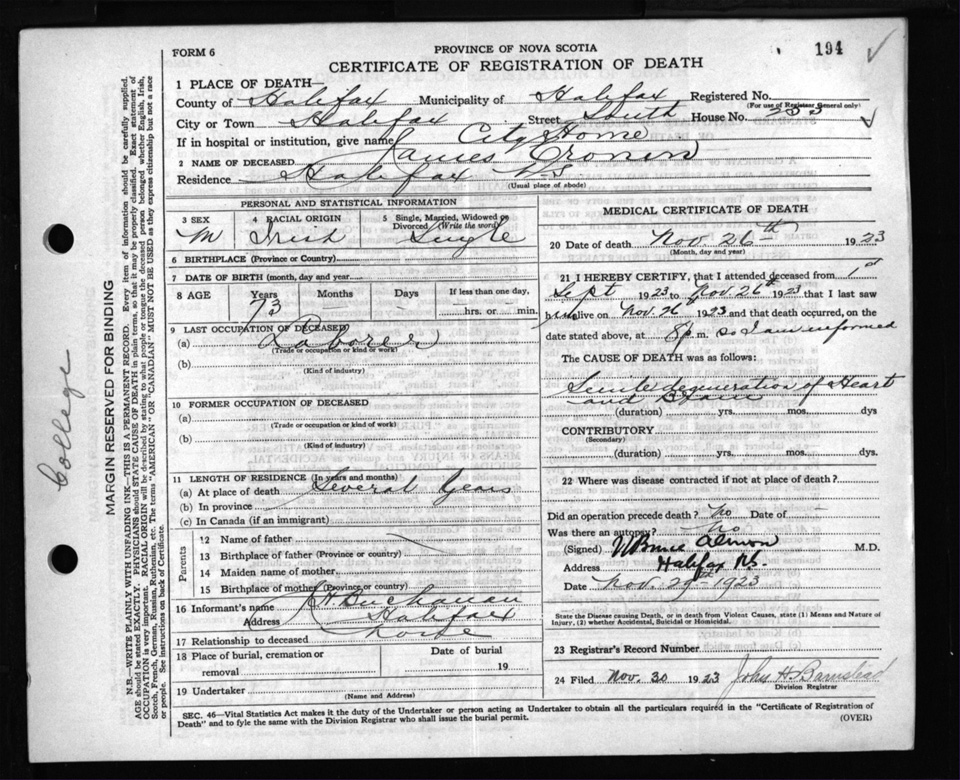 FORM 6
PROVINCE OF NOVA SCOTIA
194
CERTIFICATE OF REGISTRATION OF DEATH
1 PLACE OF DEATH—
County of Halifax Municipality of Halifax Registered No.
(For use of Registrar General only)
City or Town Halifax Street South House No.
If in hospital or institution, give name City Home
2 NAME OF DECEASED James Cronin
Residence Halifax N-S
(Usual place of abode)
PERSONAL AND STATISTICAL INFORMATION
3 SEX 4 RACIAL ORIGIN 5 Single, Married, Widowed or Divorced (Write the word)
M Irish Single
6 BIRTHPLACE (Province or Country)
7 DATE OF BIRTH (month, day and year)
8 AGE Years Months Days If less than one day,
73 — — hrs. or min.
9 LAST OCCUPATION OF DECEASED
(a) Laborer
(Trade or occupation or kind of work)
(b)
(Kind of industry)
10 FORMER OCCUPATION OF DECEASED
(a)
(Trade or occupation or kind of work)
(b)
(Kind of industry)
11 LENGTH OF RESIDENCE (In years and months)
(a) At place of death Several Years
(b) In province
(c) In Canada (if an immigrant)
Parents
12 Name of father
13 Birthplace of father (Province or country)
14 Maiden name of mother
15 Birthplace of mother (Province or country)
16 Informant's name Buchanan
Address Halifax
17 Relationship to deceased none
18 Place of burial, cremation or removal
Date of burial
19
19 Undertaker
(Name and Address)
MEDICAL CERTIFICATE OF DEATH
20 Date of death Nov. 26th 1923
(Month, day and year)
21 I HEREBY CERTIFY, that I attended deceased from 1st
Sept 1923 to Nov 26th 1923 that I last saw
him alive on Nov. 26 1923 and that death occurred, on the
date stated above, at 8 p m. so I am informed
The CAUSE OF DEATH was as follows:
Senile degeneration of Heart
and Brain
(duration) yrs. mos. dys
CONTRIBUTORY
(Secondary)
(duration) yrs. mos. dys.
22 Where was disease contracted if not at place of death?
Did an operation precede death? No Date of —
Was there an autopsy? No
(Signed) W Bruce Almon M.D.
Address Halifax N.S.
Date Nov. 29th 1923
State the Disease causing Death, or in death from Violent Causes, state (1) Means and Nature of
Injury, (2) whether Accidental, Suicidal or Homicidal.
23 Registrar's Record Number
24 Filed Nov. 30 1923 John H. Barnstead
Division Registrar
SEC. 46—Vital Statistics Act makes it the duty of the Undertaker or person acting as Undertaker to obtain all the particulars required in the "Certificate of Registration of
Death" and to fyle the same with the Division Registrar who shall issue the burial permit.
(OVER)
college
MARGIN RESERVED FOR BINDING
N.B.—WRITE PLAINLY WITH UNFADING INK—THIS IS A PERMANENT RECORD. Every item of information should be carefully supplied.
AGE should be stated EXACTLY. PHYSICIANS should STATE CAUSE OF DEATH in plain terms, so that it may be properly classified. Exact statement of
OCCUPATION is very important. RACIAL ORIGIN will be described by stating to what people or tongue the deceased person belonged whether English, Irish,
Scotch, French, German, Russian, Ruthenian, etc. The terms "AMERICAN" OR "CANADIAN" MUST NOT BE USED as they express citizenship but not a race
or people. See instructions on back of Certificate.